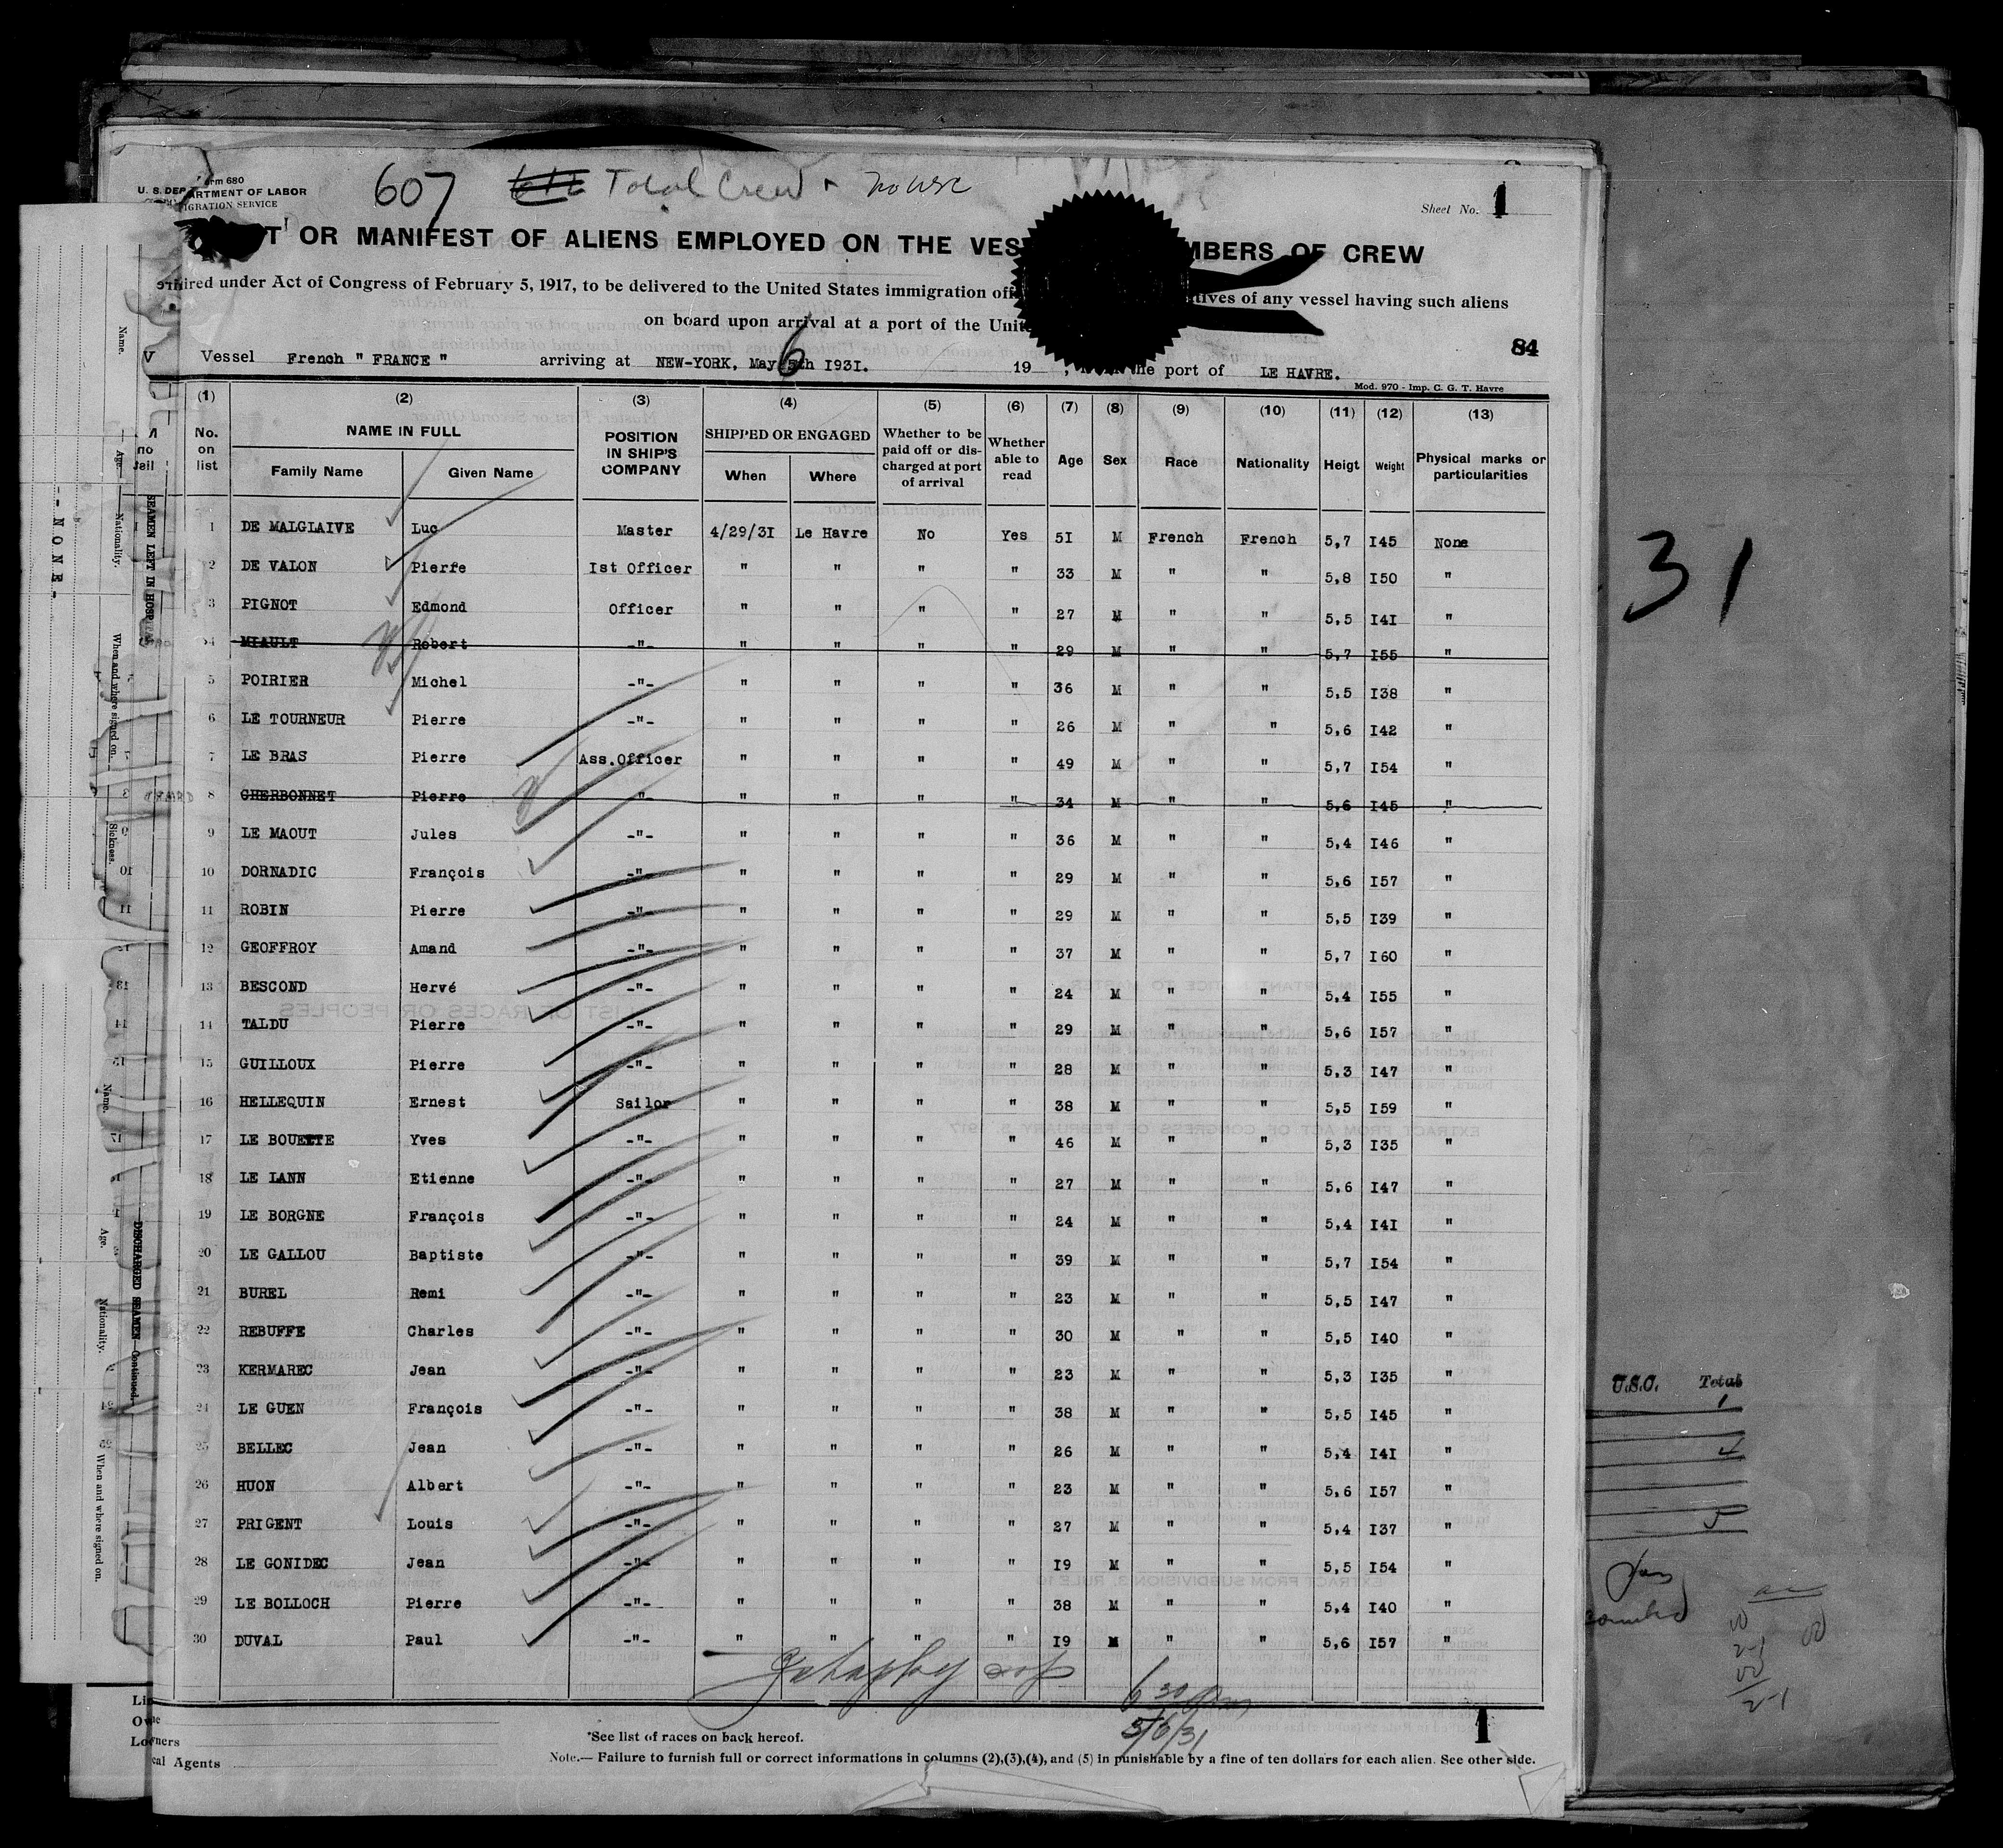 Form 680
U. S. DEPARTMENT OF LABOR
IGRATION SERVICE
607 Total Crew
Sheet No. 1
T OR MANIFEST OF ALIENS EMPLOYED ON THE VES MBERS OF CREW
uired under Act of Congress of February 5, 1917, to be delivered to the United States immigration off tives of any vessel having such aliens
on board upon arrival at a port of the Unit
84
Vessel French " FRANCE " arriving at NEW-YORK, May 6 5th I93I. 19 , the port of LE HAVRE.
Mod. 970 - Imp. C. G. T. Havre
(1) (2) (3) (4) (5) (6) (7) (8) (9) (10) (11) (12) (13)
No. on list NAME IN FULL Family Name Given Name POSITION IN SHIP'S COMPANY SHIPPED OR ENGAGED When Where Whether to be paid off or discharged at port of arrival Whether able to read Age Sex Race Nationality Heigt Weight Physical marks or particularities
1 DE MALGLAIVE Luc Master 4/29/3I Le Havre No Yes 5I M French French 5,7 I45 None
2 DE VALON Pierre Ist Officer " " " " 33 M " " 5,8 I50 "
3 PIGNOT Edmond Officer " " " " 27 M " " 5,5 I4I "
4 MIAULT Robert -"- " " " " 29 M " " 5,7 I55 "
5 POIRIER Michel -"- " " " " 36 M " " 5,5 I38 "
6 LE TOURNEUR Pierre -"- " " " " 26 M " " 5,6 I42 "
7 LE BRAS Pierre Ass.Officer " " " " 49 M " " 5,7 I54 "
8 CHERBONNET Pierre -"- " " " " 34 M " " 5,6 I45 "
9 LE MAOUT Jules -"- " " " " 36 M " " 5,4 I46 "
10 DORNADIC François -"- " " " " 29 M " " 5,6 I57 "
11 ROBIN Pierre -"- " " " " 29 M " " 5,5 I39 "
12 GEOFFROY Amand -"- " " " " 37 M " " 5,7 I60 "
13 BESCOND Hervé -"- " " " " 24 M " " 5,4 I55 "
14 TALDU Pierre -"- " " " " 29 M " " 5,6 I57 "
15 GUILLOUX Pierre -"- " " " " 28 M " " 5,3 I47 "
16 HELLEQUIN Ernest Sailor " " " " 38 M " " 5,5 I59 "
17 LE BOUETTE Yves -"- " " " " 46 M " " 5,3 I35 "
18 LE LANN Etienne -"- " " " " 27 M " " 5,6 I47 "
19 LE BORGNE François -"- " " " " 24 M " " 5,4 I4I "
20 LE GALLOU Baptiste -"- " " " " 39 M " " 5,7 I54 "
21 BUREL Remi -"- " " " " 23 M " " 5,5 I47 "
22 REBUFFE Charles -"- " " " " 30 M " " 5,5 I40 "
23 KERMAREC Jean -"- " " " " 23 M " " 5,3 I35 "
24 LE GUEN François -"- " " " " 38 M " " 5,5 I45 "
25 BELLEC Jean -"- " " " " 26 M " " 5,4 I4I "
26 HUON Albert -"- " " " " 23 M " " 5,6 I57 "
27 PRIGENT Louis -"- " " " " 27 M " " 5,4 I37 "
28 LE GONIDEC Jean -"- " " " " I9 M " " 5,5 I54 "
29 LE BOLLOCH Pierre -"- " " " " 38 M " " 5,4 I40 "
30 DUVAL Paul -"- " " " " I9 M " " 5,6 I57 "
6 30 Pm
5/6/31
*See list of races on back hereof.
1
Note.— Failure to furnish full or correct informations in columns (2),(3),(4), and (5) in punishable by a fine of ten dollars for each alien. See other side.
cal Agents
31
U.S.C. Total
1
4
5
- N O N E -
Name.
Age.
Nationality.
When and where signed on.
Sickness.
SEAMEN LEFT IN HOSPITAL
Name.
Age.
Nationality.
When and where signed on.
DISCHARGED SEAMEN—Continued.